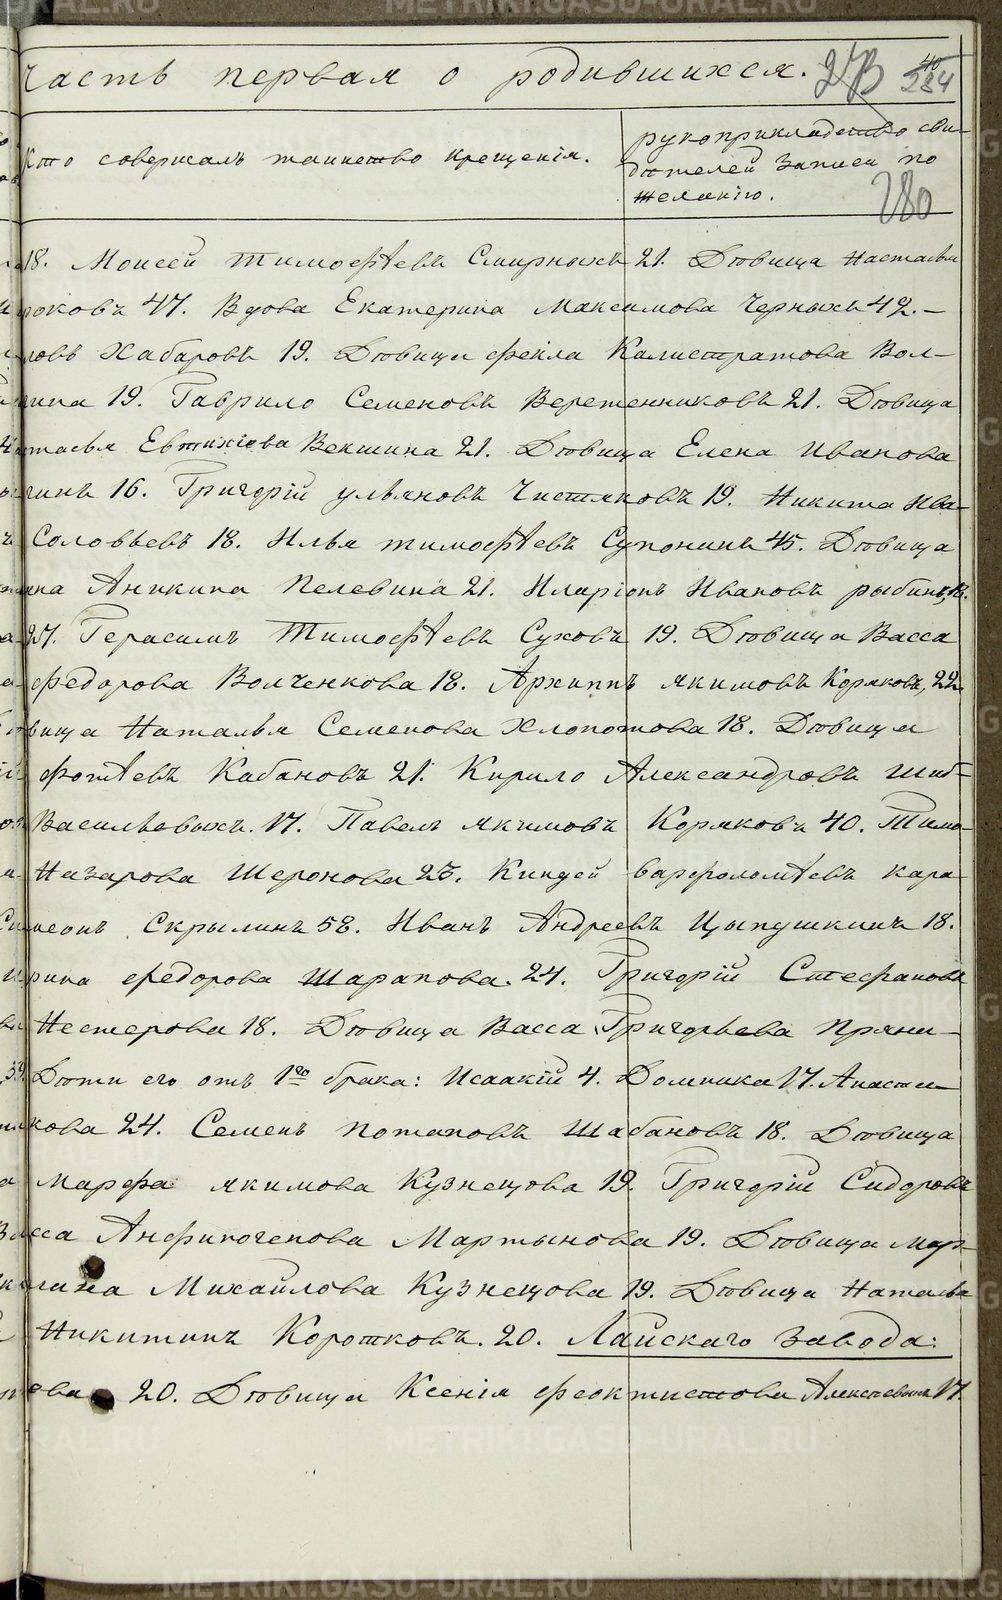 Часть первая о родившихся.
234
Кто совершалъ таинство крещенія.
рукоприкладство сви-
дѣтелей записи по
желанію.
280
18. Моисей Тимофѣевъ Смирныхъ 21. Дѣвица Настасья
роковъ 47. Вдова Екатерина Максимова Черныхъ 42.-
ловъ Хабаровъ 19. Дѣвица Фекла Калистратова Вол-
гина 19. Гаврило Семеновъ Веретенниковъ 21. Дѣвица
тасья Евтихіева Векшина 21. Дѣвица Елена Иванова
гинъ 16. Григорій Ульяновъ Чистяковъ 19. Никита Ива-
Соловьевъ 18. Илья Тимофѣевъ Супонинъ 45. Дѣвица
Аникина Пелевина 21. Иларіонъ Ивановъ Рыбинъ, 18.
27. Герасимъ Тимофѣевъ Суховъ 19. Дѣвица Васса
Федорова Волченкова 18. Архиппъ Якимовъ Коряковъ, 22.
вица Наталья Семенова Хлопотова 18. Дѣвица
Фотѣевъ Кабановъ 21. Кирило Александровъ Шаб-
Васильевыхъ. 17. Павелъ Якимовъ Коряковъ 40. Тимо-
Назарова Шеронова 23. Киндей Варфоломѣевъ Кара-
меонъ Скрылинъ 58. Иванъ Андреевъ Цыпушкинъ 18.
рина Федорова Шарапова. 24. Григорій Стефановъ
Нестерова 18. Дѣвица Васса Григорьева Пряни-
Дѣти его отъ 1го брака: Исаакій 4. Домника 17. Анаста-
кова 24. Семенъ Потаповъ Шабановъ 18. Дѣвица
Марфа Якимова Кузнецова 19. Григорій Сидоровъ
сса Анфиногенова Мартынова 19. Дѣвица Мар-
лина Михайлова Кузнецова 19. Дѣвица Наталья
Никитинъ Коротковъ. 20. Лайскаго завода:
ова 20. Дѣвица Ксенія Феоктистова Алексѣевыхъ 17.